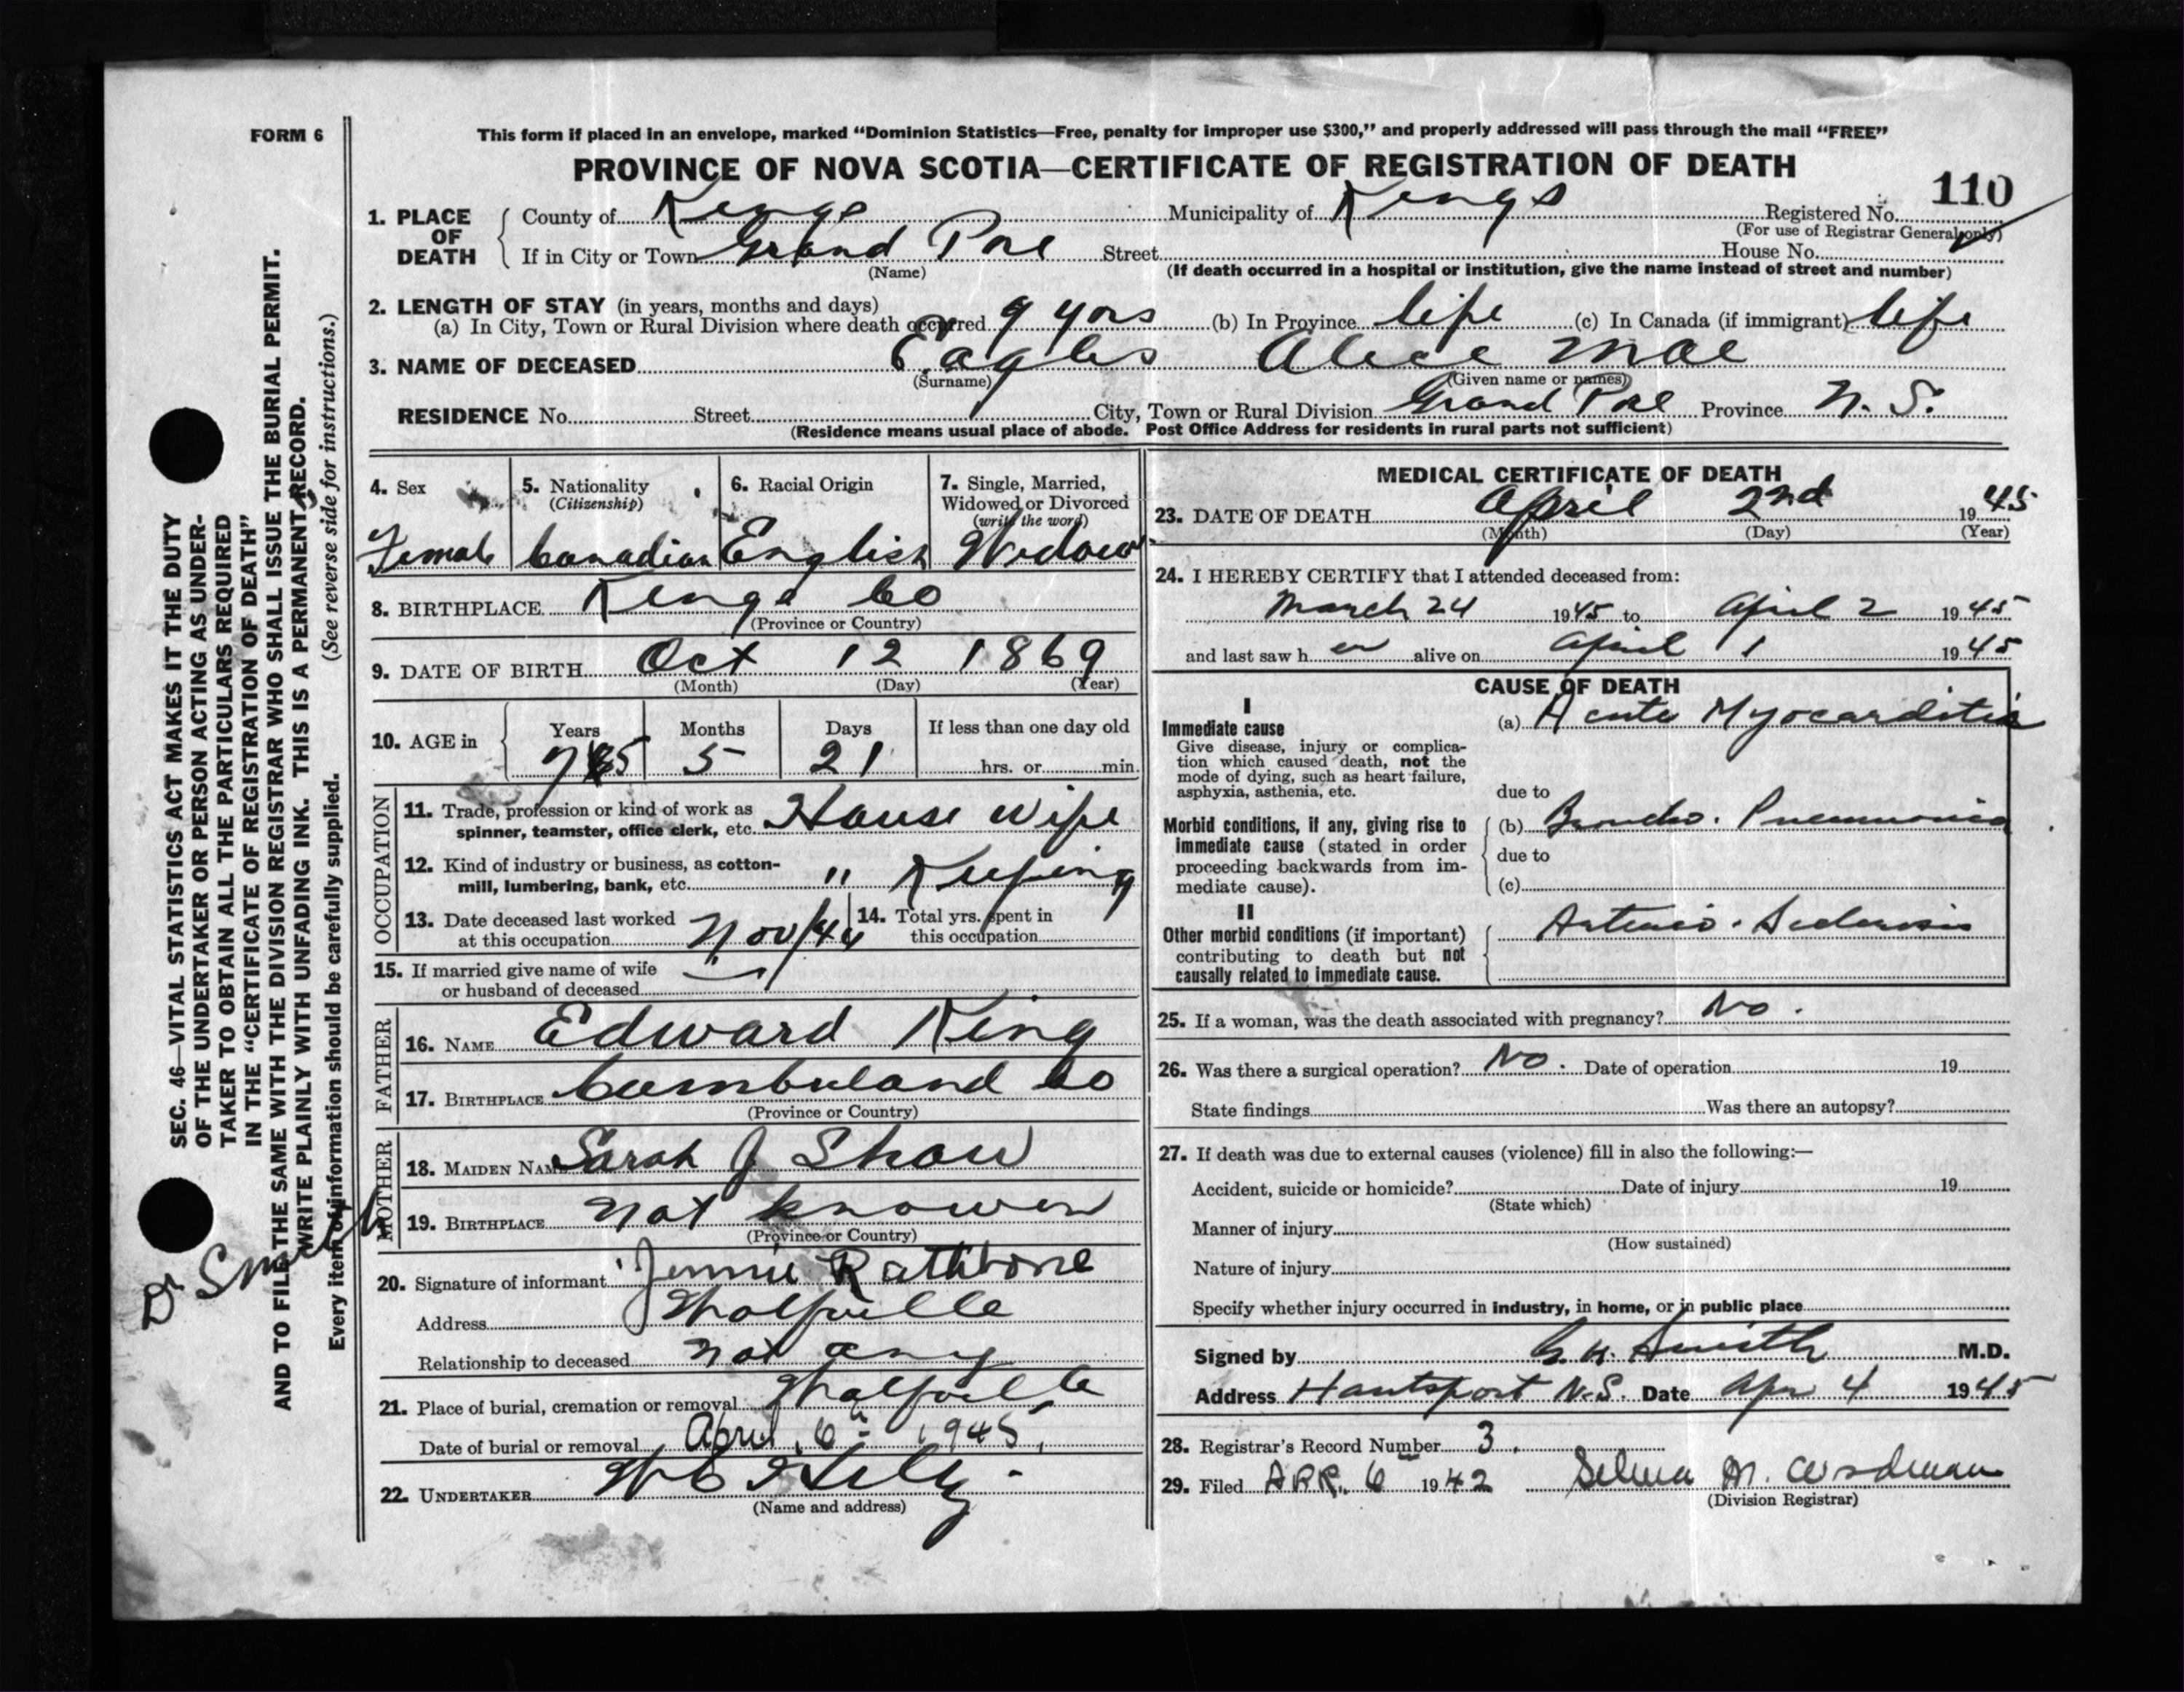 FORM 6
This form if placed in an envelope, marked “Dominion Statistics—Free, penalty for improper use $300,” and properly addressed will pass through the mail “FREE”
PROVINCE OF NOVA SCOTIA—CERTIFICATE OF REGISTRATION OF DEATH
110
1. PLACE OF DEATH
County of Kings Municipality of Kings Registered No.
(For use of Registrar General only)
If in City or Town Grand Pre Street House No.
(Name) (If death occurred in a hospital or institution, give the name instead of street and number)
2. LENGTH OF STAY (in years, months and days)
(a) In City, Town or Rural Division where death occurred 9 yors (b) In Province life (c) In Canada (if immigrant) life
3. NAME OF DECEASED Eagles Alice Mae
(Surname) (Given name or names)
RESIDENCE No. Street City, Town or Rural Division Grand Pre Province N. S.
(Residence means usual place of abode. Post Office Address for residents in rural parts not sufficient)
4. Sex 5. Nationality (Citizenship) 6. Racial Origin 7. Single, Married, Widowed or Divorced (write the word)
Female Canadian English Widow
8. BIRTHPLACE Kings Co
(Province or Country)
9. DATE OF BIRTH Oct 12 1869
(Month) (Day) (Year)
10. AGE in Years Months Days If less than one day old
75 5 21 hrs. or min.
OCCUPATION
11. Trade, profession or kind of work as
spinner, teamster, office clerk, etc. House Wife
12. Kind of industry or business, as cotton-
mill, lumbering, bank, etc. " Keeping
13. Date deceased last worked
at this occupation Nov/44
14. Total yrs. spent in
this occupation
15. If married give name of wife
or husband of deceased
FATHER
16. NAME Edward King
17. BIRTHPLACE Cumberland Co
(Province or Country)
MOTHER
18. MAIDEN NAME Sarah J Shaw
19. BIRTHPLACE not knowen
(Province or Country)
20. Signature of informant Jennie Rathbone
Address Wolfville
Relationship to deceased not any
21. Place of burial, cremation or removal Wolfville
Date of burial or removal April 6th 1945
22. UNDERTAKER W C
(Name and address)
MEDICAL CERTIFICATE OF DEATH
23. DATE OF DEATH April 22nd 1945
(Month) (Day) (Year)
24. I HEREBY CERTIFY that I attended deceased from:
March 24 1945 to April 2 1945
and last saw h er alive on April 1 1945
CAUSE OF DEATH
I
Immediate cause
Give disease, injury or complica-
tion which caused death, not the
mode of dying, such as heart failure,
asphyxia, asthenia, etc.
(a) Acute Myocarditis
due to
Morbid conditions, if any, giving rise to
immediate cause (stated in order
proceeding backwards from im-
mediate cause).
(b) Broncho. Pneumonia
due to
(c)
II
Other morbid conditions (if important)
contributing to death but not
causally related to immediate cause.
Arterio. Sclerosis
25. If a woman, was the death associated with pregnancy? No.
26. Was there a surgical operation? No. Date of operation 19
State findings Was there an autopsy?
27. If death was due to external causes (violence) fill in also the following:—
Accident, suicide or homicide? Date of injury 19
(State which)
Manner of injury
(How sustained)
Nature of injury
Specify whether injury occurred in industry, in home, or in public place
Signed by G. K. Smith M.D.
Address Hantsport N.S. Date Apr 4 1945
28. Registrar's Record Number 3.
29. Filed APR. 6 1942 Selma M. Woodman
(Division Registrar)
SEC. 46—VITAL STATISTICS ACT MAKES IT THE DUTY
OF THE UNDERTAKER OR PERSON ACTING AS UNDER-
TAKER TO OBTAIN ALL THE PARTICULARS REQUIRED
IN THE “CERTIFICATE OF REGISTRATION OF DEATH”
AND TO FILE THE SAME WITH THE DIVISION REGISTRAR WHO SHALL ISSUE THE BURIAL PERMIT.
WRITE PLAINLY WITH UNFADING INK. THIS IS A PERMANENT RECORD.
Every item of information should be carefully supplied. (See reverse side for instructions.)
Dr Smith